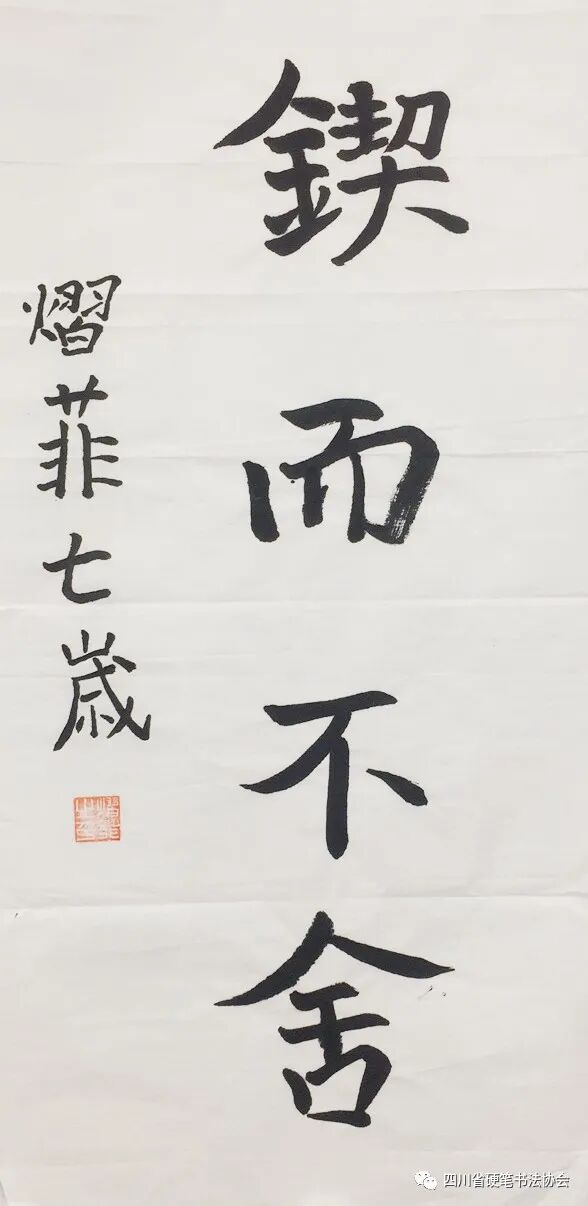 鍥而不舍
熠菲七歳
四川省硬笔书法协会